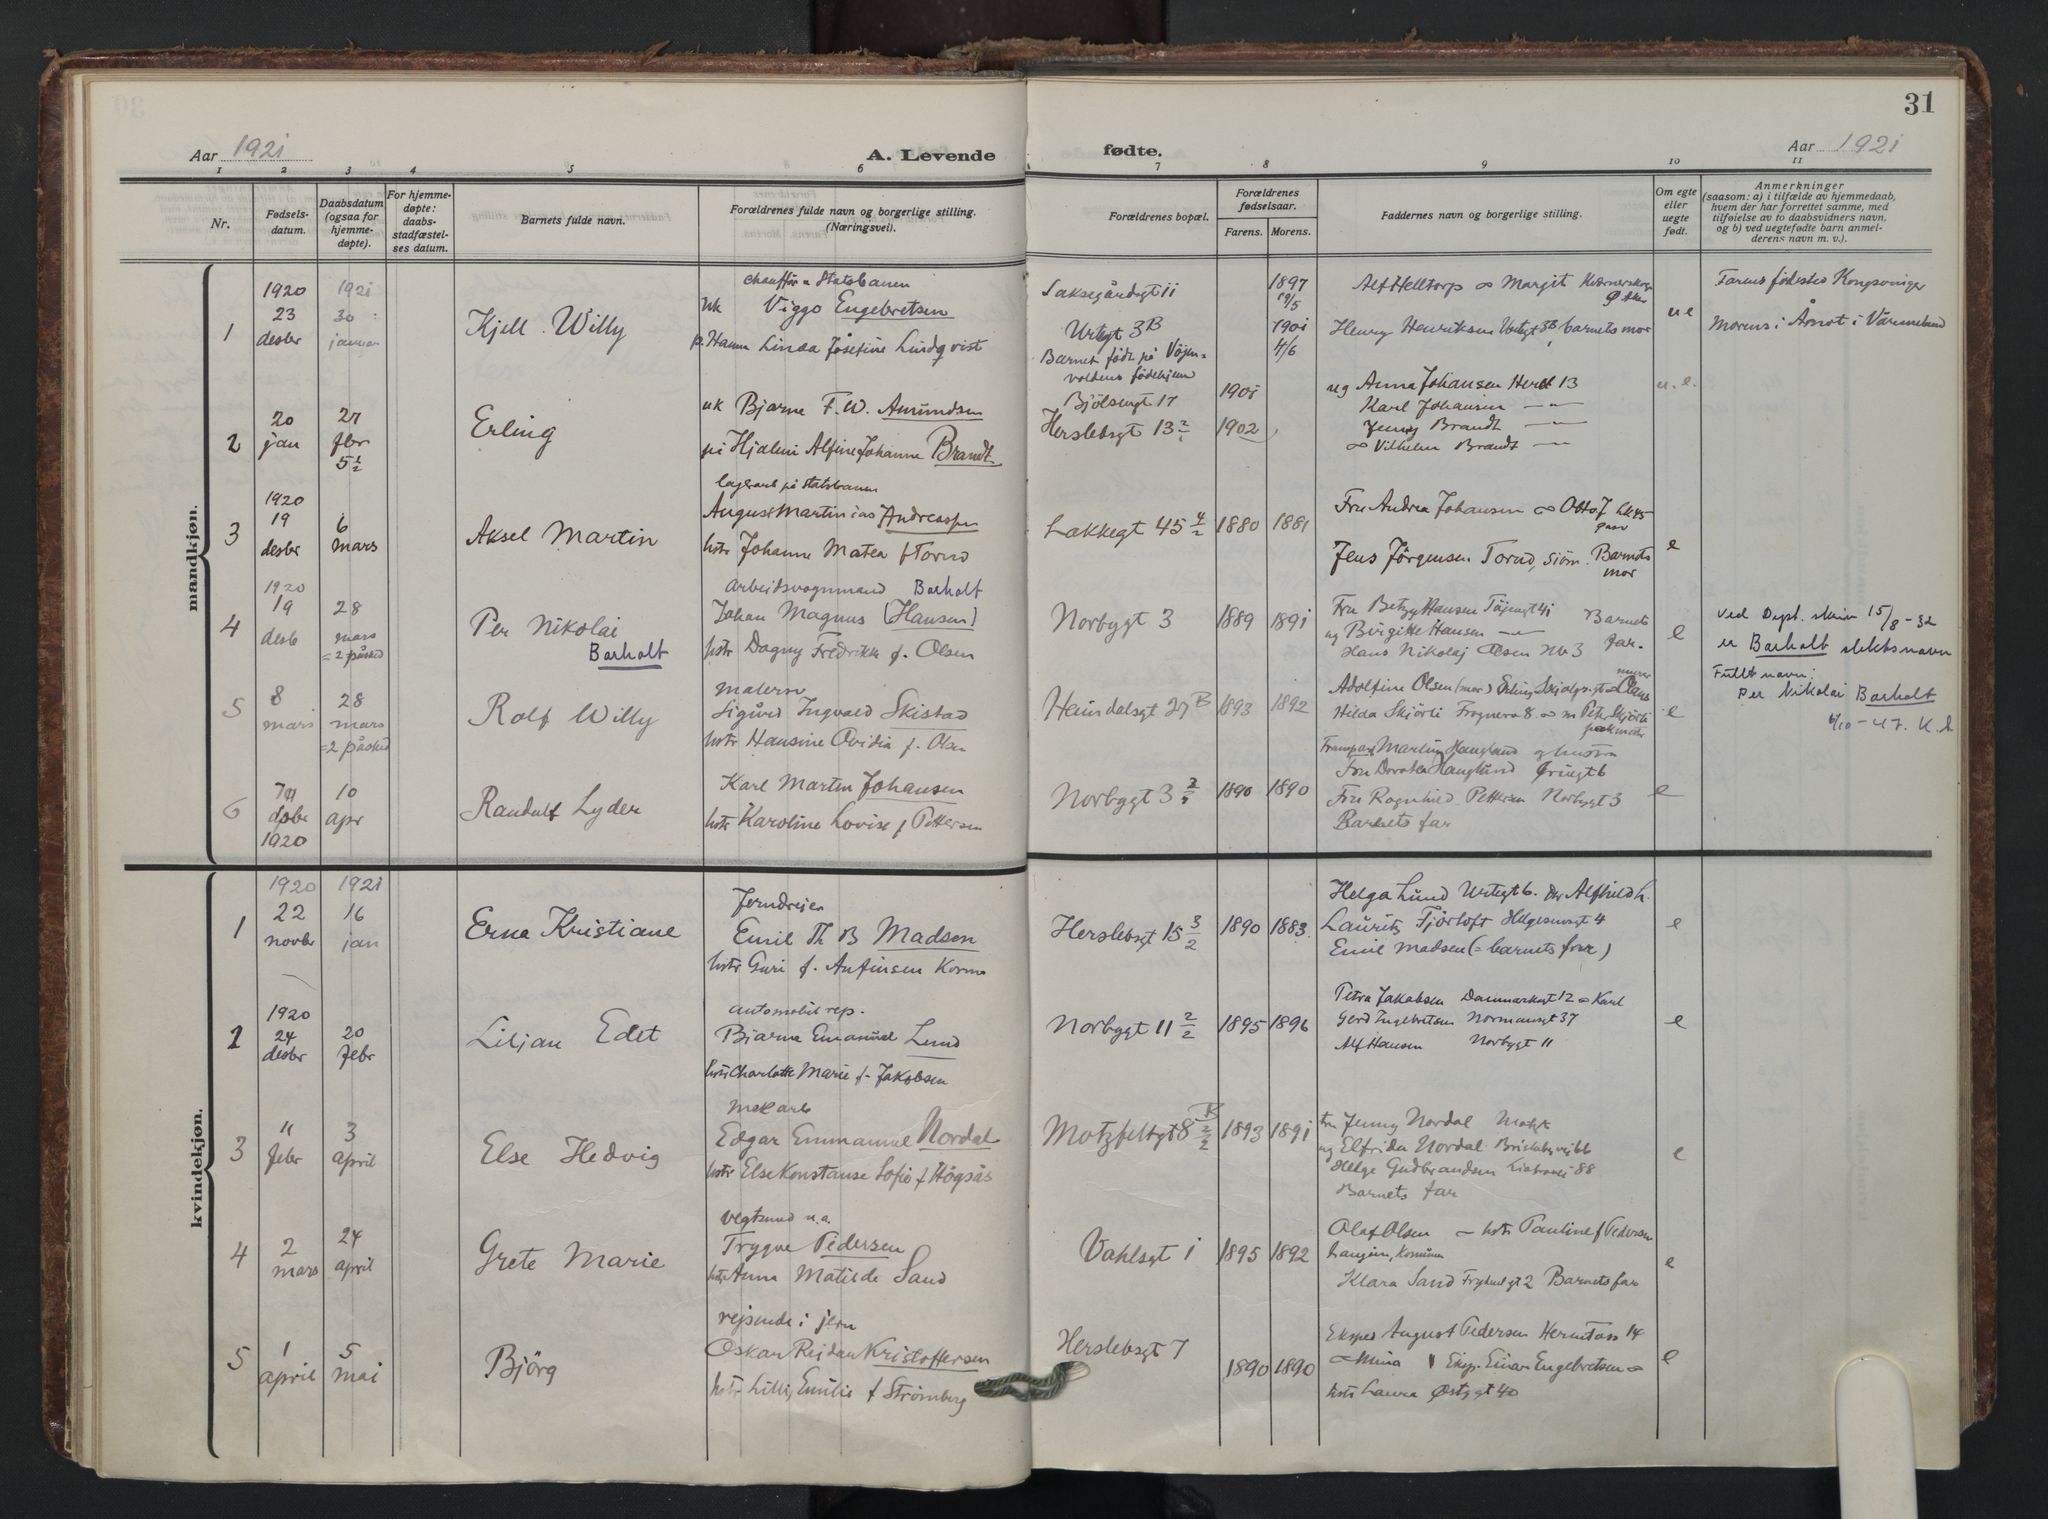 31
Aar 1921
A. Levende fødte.
Aar 1921
1 2 3 4 5 6 7 8 9 10 11
Nr.
Fødsels-
datum.
Daabsdatum
(ogsaa for
hjemme-
døpte).
For hjemme-
døpte:
daabs-
stadfæstel-
ses datum.
Barnets fulde navn.
Forældrenes fulde navn og borgerlige stilling.
(Næringsvei).
Forældrenes bopæl.
Forældrenes
fødselsaar.
Farens. Morens.
Faddernes navn og borgerlige stilling.
Om egte
eller
uegte
født.
Anmerkninger
(saasom: a) i tilfælde av hjemmedaab,
hvem der har forrettet samme, med
tilføielse av to daabsvidners navn,
og b) ved uegtefødte barn anmel-
derens navn m. v.).
mandkjøn.
1
1920
23
desbr
1921
30
januar
Kjell Willy
chauffør v Statsbanen
uk Viggo Engebretsen
p. Hanna Linda Josefine Lindqvist
Saksegårdsgt 11
Urtegt 3B
Barnet født på Vøjen-
voldens fødehjem
1897
19/5
1901
4/6
Alf Helltorp Margit
Henry Henriksen Urtegt 3B, barnets mor
u e
Farens fødested Kongsvinger
Morens i Årnot i Värmeland
2
20
jan
27
fbr
5½
Erling
uk Bjarne F. W. Amundsen
pi Hjalmi Alfine Johanne Brandt
Bjølsengt 17
Herslebsgt 13 2/1
1901
1902
ug Anna Johansen Hersl 13
Karl Johansen — " —
Jenny Brandt — " —
Vilhelm Brandt — " —
u. e.
3
1920
19
desbr
6
mars
Aksel Martin
lagerarb på Statsbanen
August Martinias Andreassen
hstr Johanne Matea f Tornd
Lakkegt 45 4/2
1880 1881
Fru Andrea Johansen Otto J
Jens Jørgensen Tornd, sjøm. Barnets
mor
e
4
1920
19
desb
28
mars
= 2 påsked
Per Nikolai
Barholt
Arbeidsvognmand Barholt
Johan Magnus (Hansen)
hstr Dagny Fredrikke f. Olsen
Norbygt 3
1889 1891
Fru Betzy Hansen Tøjengt 41 Barnets
ug Birgitte Hansen — " — far.
Hans Nikolaj Olsen No 3
e
Ved Dept. skriv 15/8-32
er Barholt slektsnavn
Fullt navn:
Per Nikolai Barholt
5
8
mars
28
mars
= 2 påsked
Rolf Willy
malersv
Sigurd Ingvald Skistad
hstr Hansine Ovidia f. Olsen
Heimdalsgt 27 B
1893 1892
Adolfine Olsen (mor)
Hilda Skjörli Frognerv 8 m Peter Skjörli
e
6/10-47. K.
6
desbr
1920
10
apr
Randulf Lyder
Karl Martin Johansen
hstr Karoline Lovise f Pettersen
Norbygt 3 2/2
1890 1890
Martin Hauglund og hustru
Fru Dorotea Hauglund
Fru Ragnhild Pettersen Norbygt 3
Barnets far
e
kvindekjøn.
1
1920
22
novbr
1921
16
jan
Erna Kristiane
Jerndreier
Emil Th B Madsen
hstr Guri f. Anfinsen Kormo
Herslebsgt 15 3/2
1890 1883
Helga Lund Urtegt 6. Alfhild L.
Lauritz Fjørtoft Helgesensgt 4
Emil Madsen (= barnets far)
e
2
1920
24
desbr
20
febr
Liljan Edet
automobilrep.
Bjarne Emanuel Lund
hstr Charlotte Marie f. Jakobsen
Norbygt 11 2/2
1895 1896
Petra Jakobsen Danmarksgt 12 Karl
Gerd Ingebretsen Normansgt 37
Alf Hansen Norbygt 11
e
3
11
febr
3
april
Else Hedvig
mekarb
Edgar Emmanuel Nordal
hstr Else Konstanse Sofie f Høgsås
Motzfeltsgt 8 B 2/2
1893 1891
Jenny Nordal Motzf
ug Elfrida Nordal Briskebyvei 66
Helge Gudbrandsen 88
Barnets far
e
4
2
mars
24
april
Grete Marie
Trygve Pedersen
hstr Anna Matilde Sand
Vahlsgt 1
1895 1892
Olaf Olsen — hstr Pauline f Pedersen
Klara Sand 2 Barnets far
e
5
1
april
5
mai
Bjørg
rejsende i jern
Oskar Rejdar Kristoffersen
hstr Lilly Emilie f Strømberg
Herslebsgt 7
1890 1890
Eksped August Pedersen 14
Mina Eksp. Einar Engebretsen
hstr Laura Østbygt 40
e